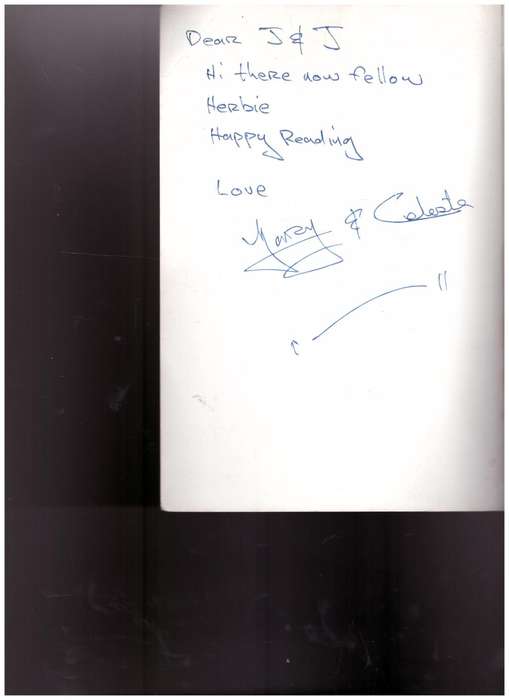 Dear J & J
Hi there now fellow
Herbie
Happy Reading
Love
& Celeste